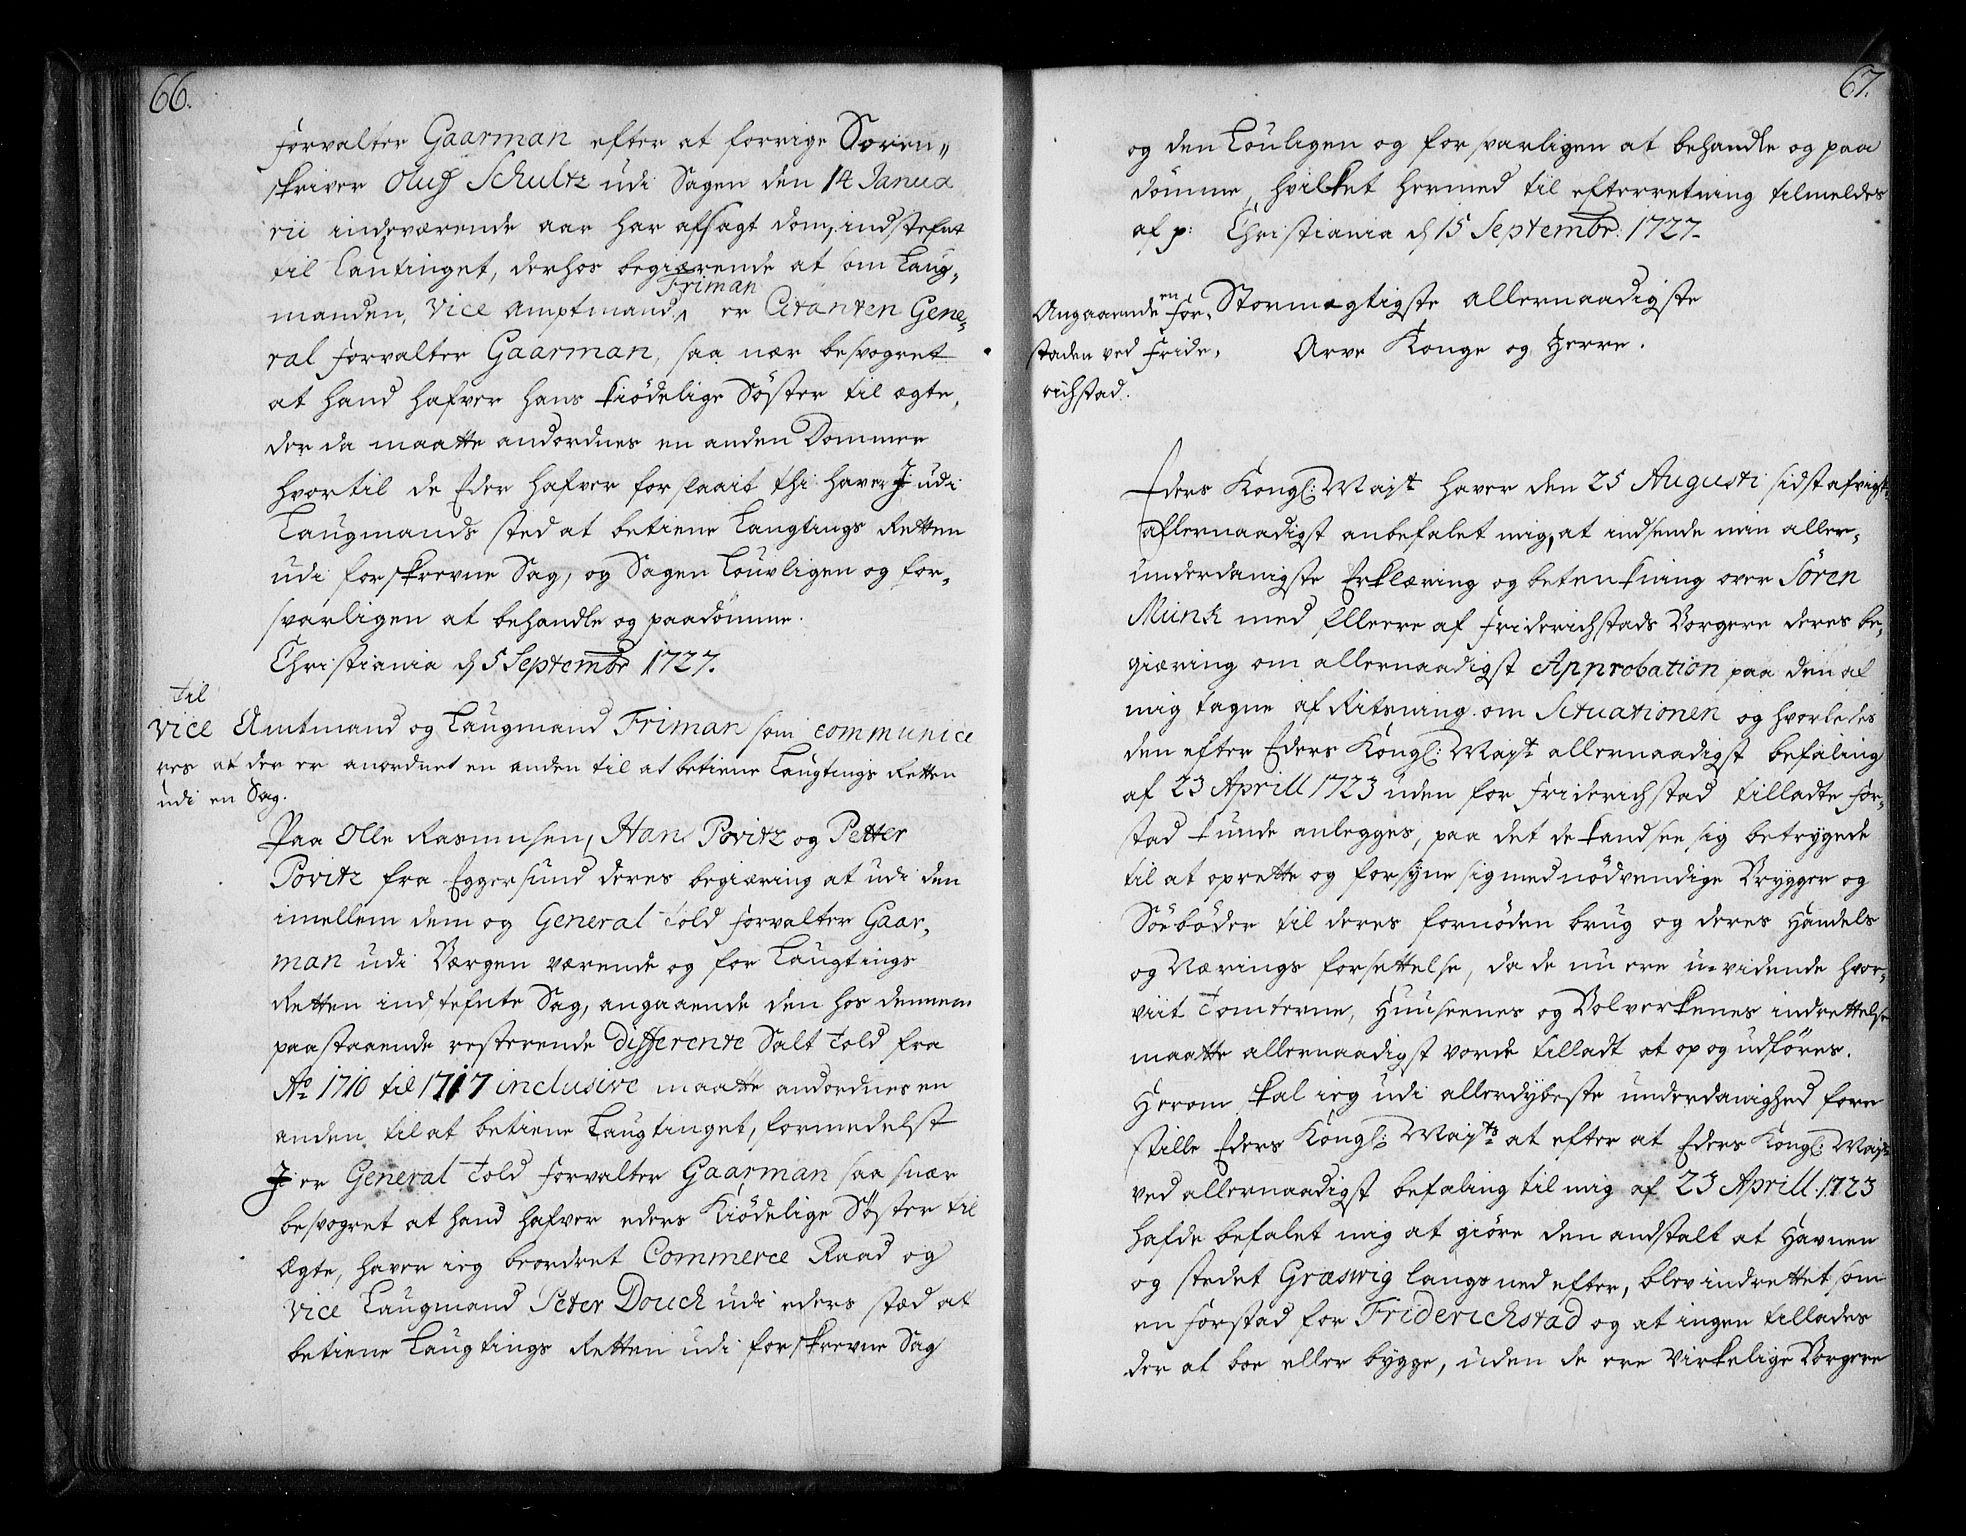 66.
forvalter Gaarman efter at forrige Soren„
skriver Oluf Schultz udi Sagen den 14 Janua
rii indeværende aar har afsagt dom, indstefnt
til Lautinget, derhos begiærende at som Laug„
manden, Vice amptmand Friman er Citanten Gene„
ral forvalter Gaarman, saa nær besvogret
at hand hafver hans kiödelige Söster til ægte,
der da maatte andordnes en anden Dommer
hvortil de Eder hafver forslaait thi haver I udi
Laugmands sted at betiene Laugtings Retten
udi forskrevne Sag, og Sagen Louvligen og for„
svarligen at behandle og paadömme.
Christiania d 5 Septembr 1727.
Til
Vice Amtmand og Laugmand Friman som communice
res at der er anordnet en anden til at betiene Laugtings Retten
udi en Sag.
Paa Olle Rasmusen, Hans Povitz og Petter
Povitz fra Eggersund deres begiæring at udi den
imellem dem og General Told forvalter Gaar„
man udi Bergen værende og for Laugtings
Retten indstefnte Sag, angaaende den hos dennem
paastaaende resterende differente Salt Told fra
Ao 1710 til 1717 inclusive maatte andordnes en
anden til at betiene Laugtinget, formedelst
I er General Told forvalter Gaarman saa nær
besvogret at hand hafver eders Kiödelige Söster til
Ægte, haver ieg beordret Commerce Raad og
Vice Laugmand Peter Douch udi eders stæd at
betiene Laugtings Retten udi forskrevne Sag
67.
og den Louligen og forsvarligen at behandle og paa
dömme, hvilket hermed til efterretning tilmeldes
af p: Christiania d 15 Septembr: 1727.
Angaaende en For„
staden ved Fride„
richstad.
Stormægtigste allernaadigste
Arve Konge og Herre.
Eders Kongl: Mayt haver den 25 Augusti sidstafvigt
allernaadigst anbefalet mig, at indsende min aller„
underdanigste Erklæring og betenkning over Sören
Munk med fleere af Friderichstads Borgere deres be„
giæring om allernaadigst Approbation paa den af
mig tagne afRitsning om Situationen og hvorledes
den efter Eders Kongl: Mayt allernaadigst befaling
af 23 Aprill 1723 uden for Friderichstad tilladte for„
stad kunde anlegges, paa det de kand see sig betrygede
til at oprette og forsyne sig med nödvendige Brygger og
Söeboder til deres fornöden brug og deres Handels
og Nærings forsettelse, da de nu ere uvidende hvor„
viit Tomterne, Huuseenes og Bolverkenes indrettelse
maatte allernaadigst vorde tilladt at op og udföres.
Herom skal ieg udi allerdybeste underdanighed fore
stille Eders Kongl: Mayts at efter at Eders Kongl: Mayt
ved allernaadigst befaling til mig af 23 Aprill: 1723
hafde befalet mig at giöre den andstalt at Havnen
og stedet Græswig langs nedefter, blev indrettet som
en Forstad for Friderichstad og at ingen tillades
der at boe eller bygge, uden de ere Virkelige Borgere